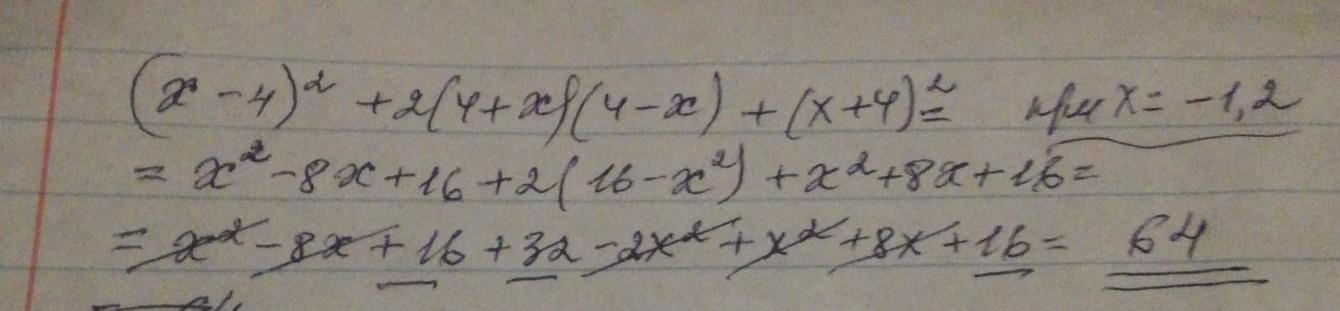 (x - 4)² + 2(4+x)(4-x) + (x+4)² = при x = -1,2
= x² - 8x + 16 + 2(16 - x²) + x² + 8x + 16 =
= x² - 8x + 16 + 32 - 2x² + x² + 8x + 16 = 64